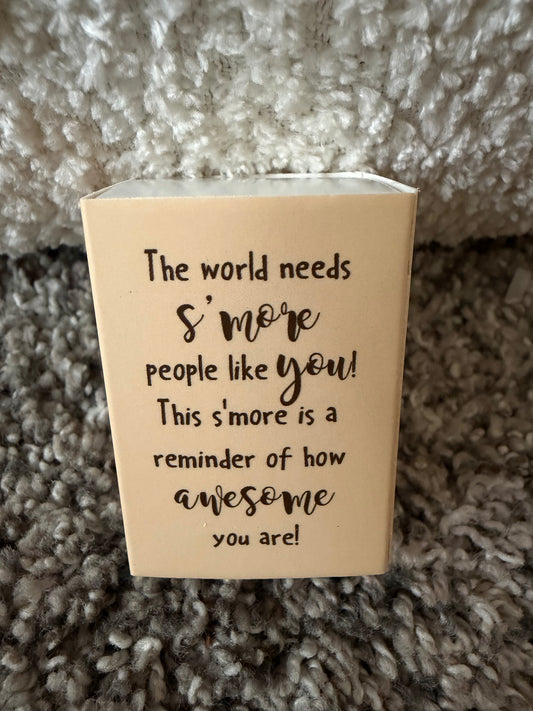 The world needs
s'more
people like you!
This s'more is a
reminder of how
awesome
you are!